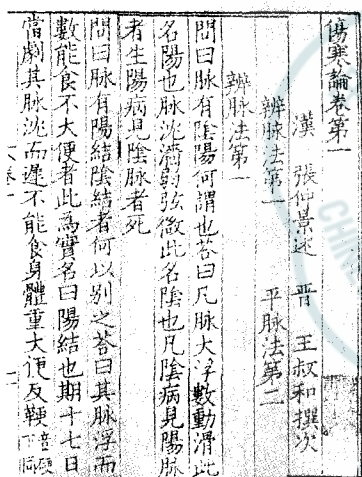 傷寒論卷第一
漢 張仲景述 晉 王叔和撰次
辨脉法第一 平脉法第二
辨脉法第一
問曰脉有陰陽何謂也荅曰凡脉大浮數動滑此
名陽也脉沈濇弱弦微此名隂也凡隂病見陽脉
者生陽病見隂脉者死
問曰脉有陽結隂結者何以别之荅曰其脉浮而
數能食不大便者此為實名曰陽結也期十七日
當劇其脉沈而遲不能食身體重大便反鞕